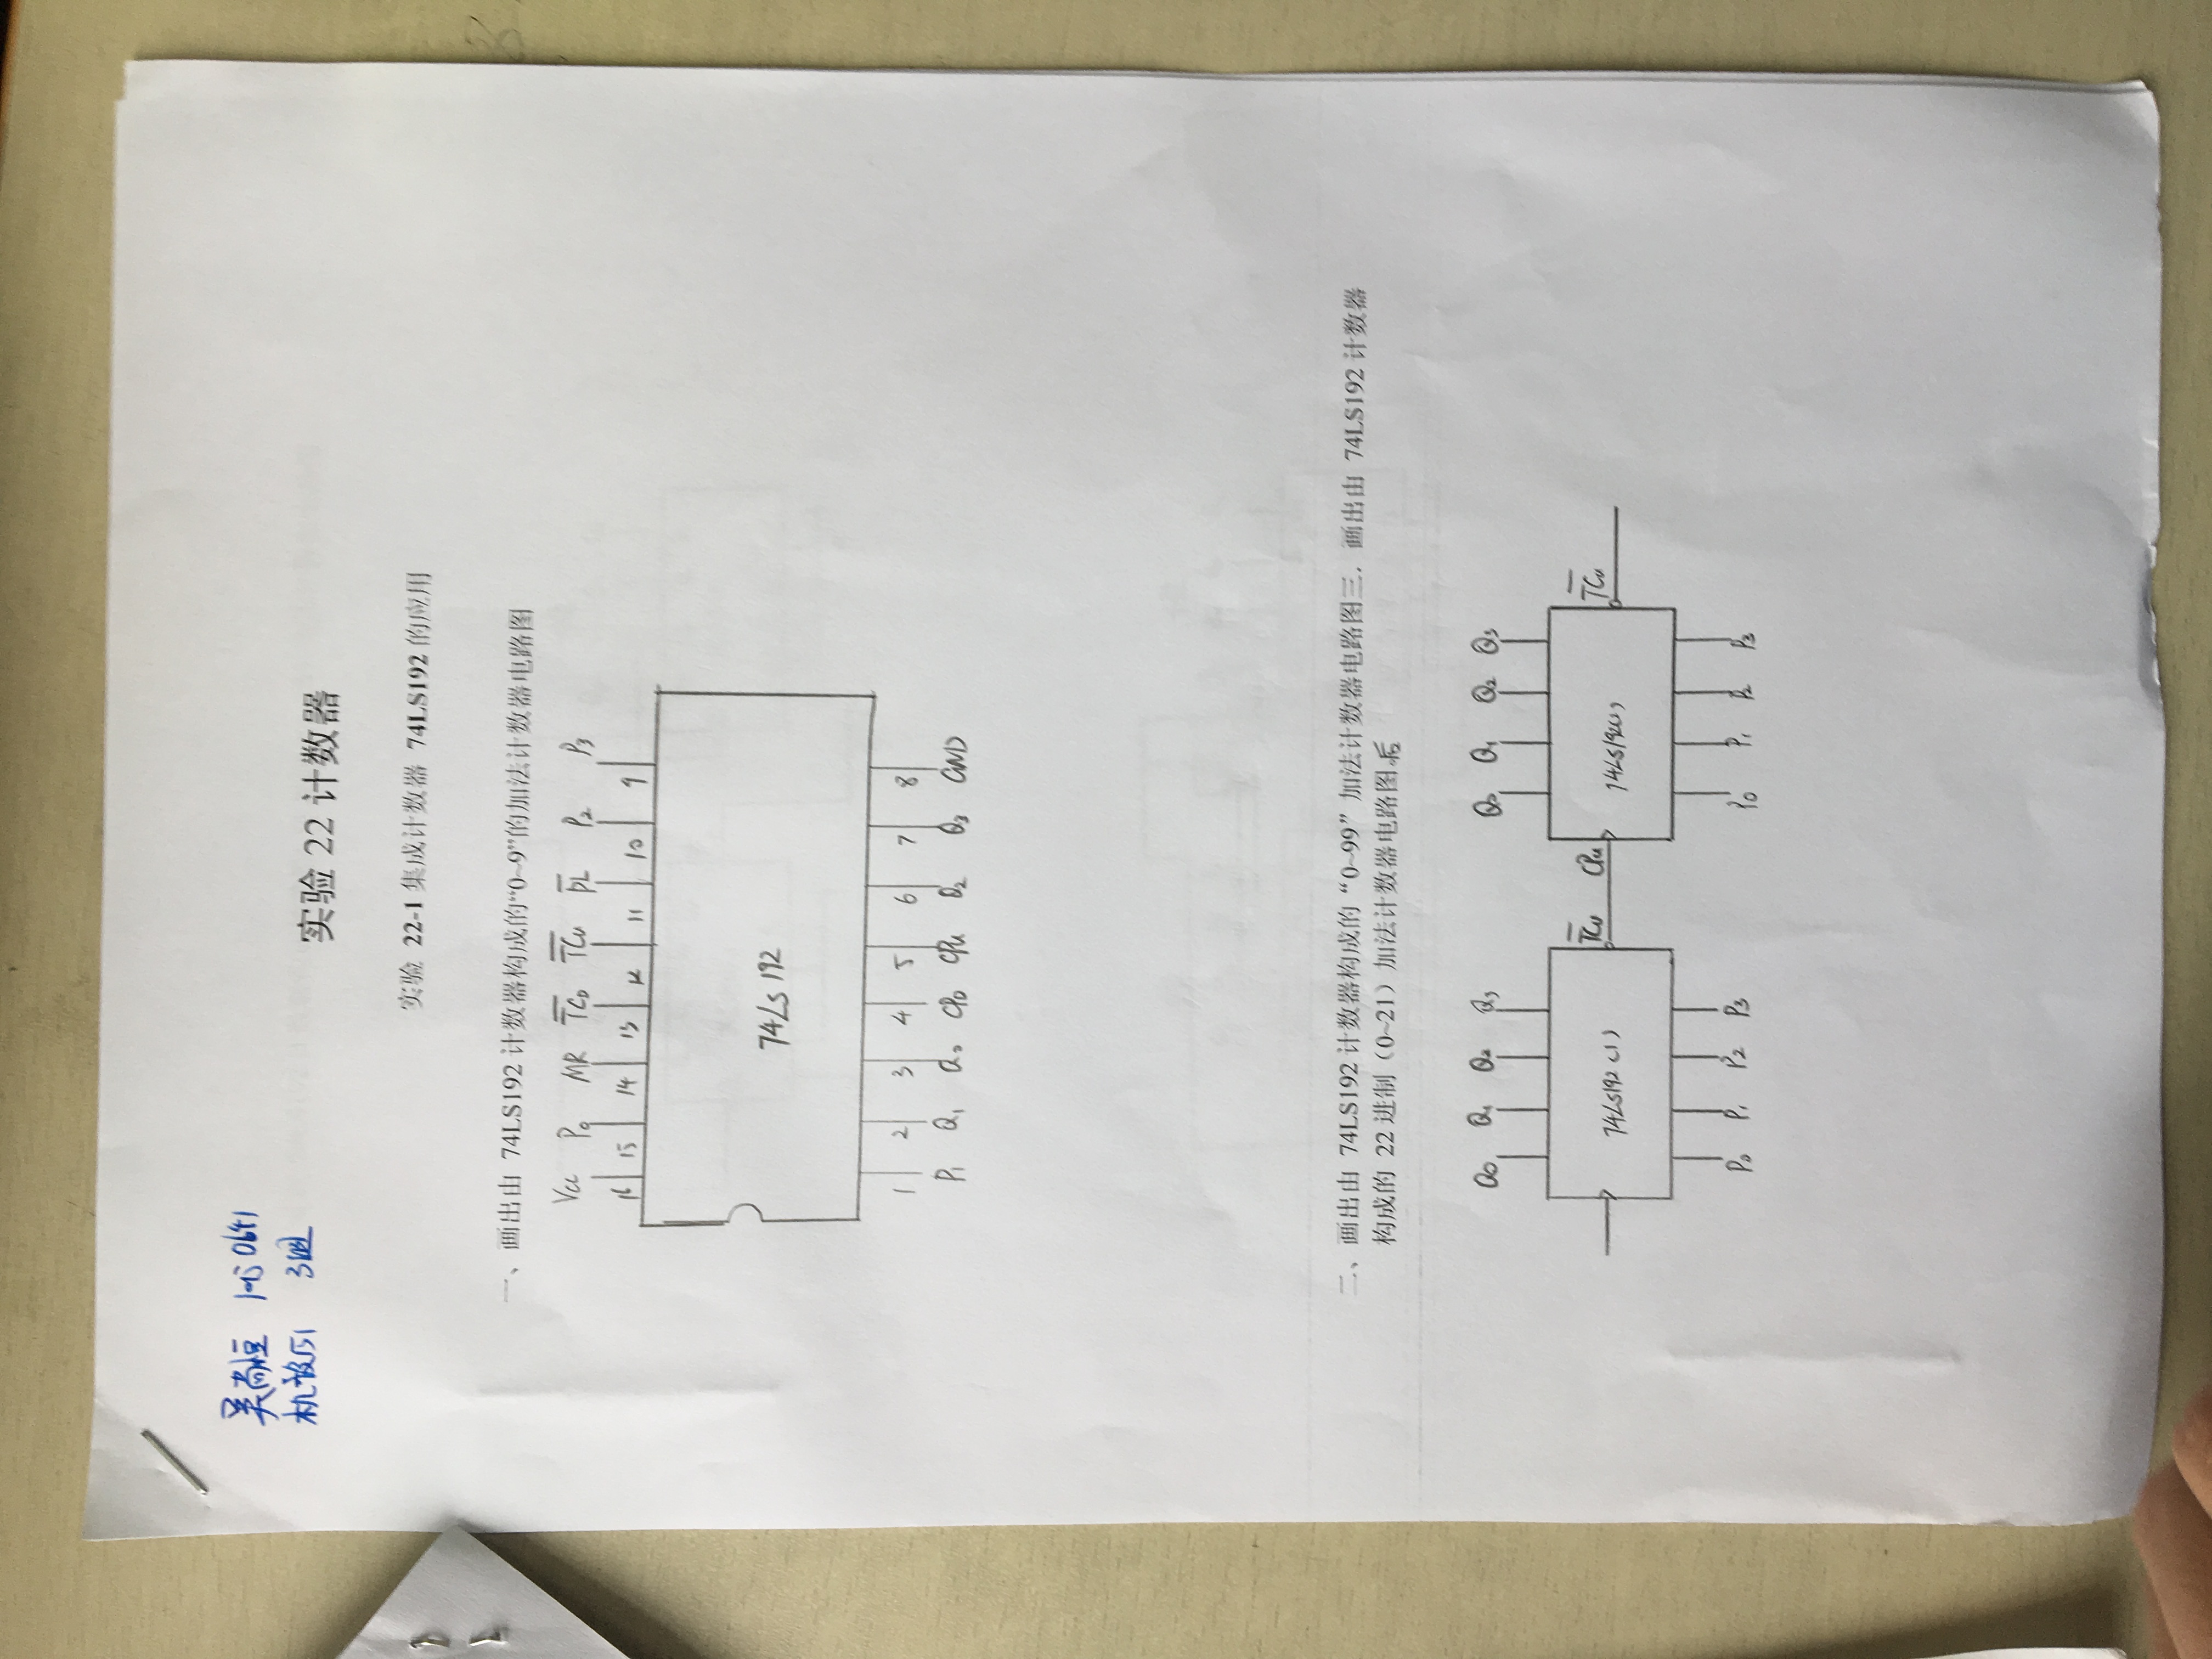 吴尚恒
3组
实验 22 计数器
实验 22-1 集成计数器 74LS192 的应用
一、画出由 74LS192 计数器构成的“0~9”的加法计数器电路图
Vcc P0 MR T̅C̅D T̅C̅U P̅L̅ P2 P3
16 15 14 13 12 11 10 9
74LS192
1 2 3 4 5 6 7 8
P1 Q1 Q0 CPD CPU Q2 Q3 GND
二、画出由 74LS192 计数器构成的“0~99”加法计数器电路图三. 画出由 74LS192 计数器
构成的 22 进制（0~21）加法计数器电路图
Q0 Q1 Q2 Q3 Q0 Q1 Q2 Q3
74LS192(1) T̅C̅U CPU 74LS192(2) T̅C̅U
P0 P1 P2 P3 P0 P1 P2 P3